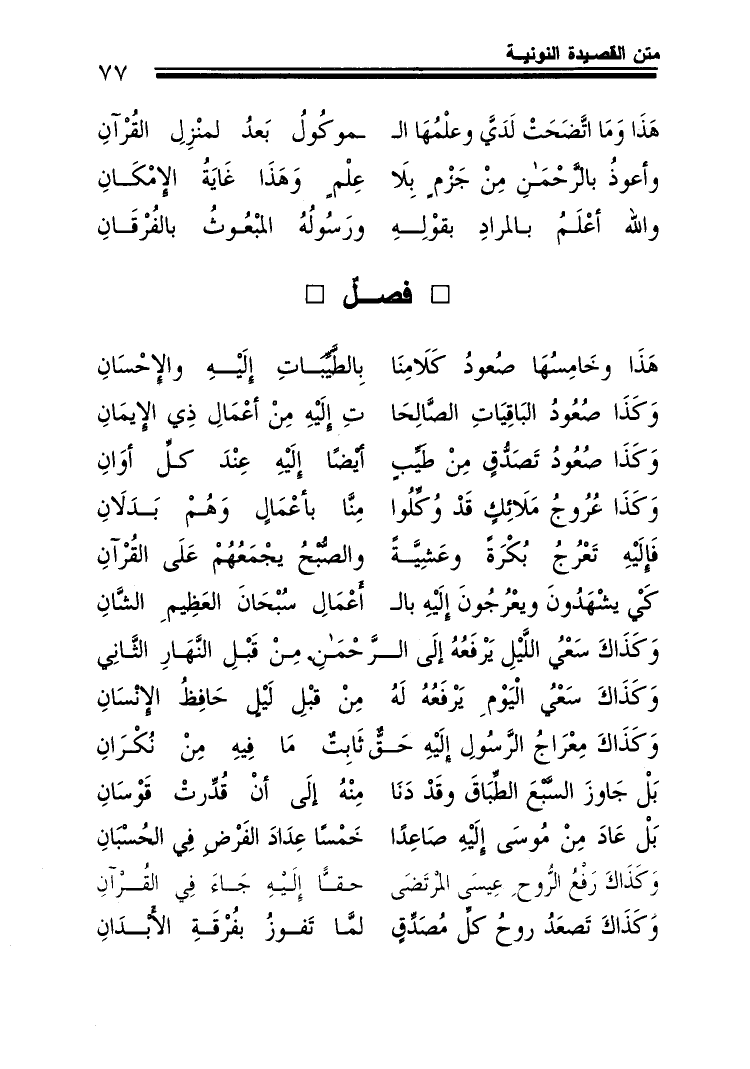 متن القصيدة النونية
٧٧
هَذَا وَمَا اتَّضَحَتْ لَدَيَّ وعلْمُهَا الـ ـموكُولُ بَعدُ لمنْزِلِ القُرْآنِ
وأعوذُ بالرَّحْمَنِ مِنْ جَزْمٍ بِلَا عِلْمٍ وَهَذَا غَايَةُ الإمْكَـانِ
والله أعْلَـمُ بـالمرادِ بقوْلِـهِ ورَسُولُهُ المبْعُوثُ بالفُرْقَـانِ
□ فصـلٌ □
هَذَا وخَامِسُهَا صُعودُ كَلَامِنَا بالطَّيِّبَـاتِ إلَيْـهِ والإحْسَانِ
وَكَذَا صُعُودُ البَاقِيَاتِ الصَّالِحَا تِ إلَيْهِ مِنْ أعْمَالِ ذِي الإيمَانِ
وَكَذَا صُعُودُ تَصَدُّقٍ مِنْ طَيِّبٍ أيْضًا إلَيْهِ عِنْدَ كـلِّ أوَانِ
وَكَذَا عُرُوجُ مَلَائِكٍ قَدْ وُكِّلُوا مِنَّا بأعْمَالٍ وَهُـمْ بَـدَلَانِ
فَإلَيْهِ تَعْرُجُ بُكْرَةً وعَشِيَّـةً والصُّبْحُ يجْمَعُهُمْ عَلَى القُرْآنِ
كَيْ يشْهَدُونَ ويعْرُجُونَ إلَيْهِ بالـ أَعْمَالِ سُبْحَانَ العَظِيمِ الشَّانِ
وَكَذَاكَ سَعْيُ اللَّيْلِ يَرْفَعُهُ إلَى الـرَّحْمَنِ مِـنْ قَبْلِ النَّهَارِ الثَّانِي
وَكَذَاكَ سَعْيُ الْيَوْمِ يَرْفَعُهُ لَهُ مِنْ قَبْلِ لَيْلٍ حَافِظُ الإنْسَانِ
وَكَذَاكَ مِعْرَاجُ الرَّسُولِ إلَيْهِ حَـقٌّ ثَابِتٌ مَا فِيهِ مِنْ نُكْـرَانِ
بَلْ جَاوَزَ السَّبْعَ الطِّبَاقَ وقَدْ دَنَا مِنْهُ إلَى أنْ قُدِّرتْ قَوْسَانِ
بَلْ عَادَ مِنْ مُوسَى إلَيْهِ صَاعِدًا خَمْسًا عِدَادَ الفَرْضِ فِي الحُسْبَانِ
وَكَذَاكَ رَفْعُ الرُّوحِ عِيسَى المرْتَضَى حـقًّـا إلَيْـهِ جَـاءَ فِي القُـرْآنِ
وَكَذَاكَ تَصعَدُ روحُ كلِّ مُصَدِّقٍ لمَّا تَفـوزُ بفُرْقَـةِ الأبْـدَانِ